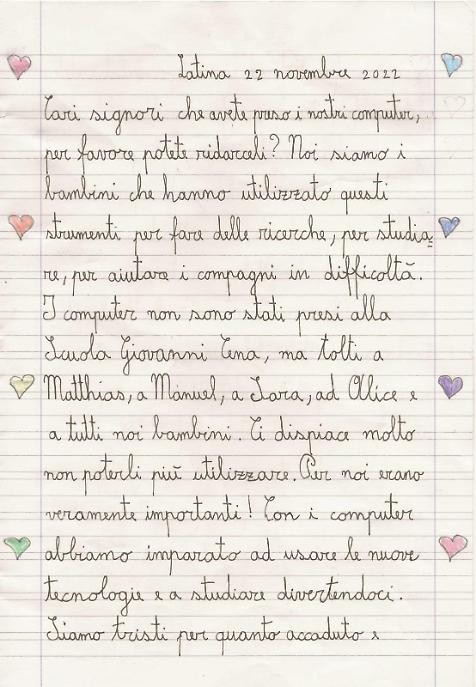 Latina 22 novembre 2022
Cari signori che avete preso i nostri computer,
per favore potete ridarceli? Noi siamo i
bambini che hanno utilizzato questi
strumenti per fare delle ricerche, per studia
re, per aiutare i compagni in difficoltà.
I computer non sono stati presi alla
Scuola Giovanni Cena, ma tolti a
Matthias, a Manuel, a Sara, ad Alice e
a tutti noi bambini. Ci dispiace molto
non poterli più utilizzare. Per noi erano
veramente importanti! Con i computer
abbiamo imparato ad usare le nuove
tecnologie e a studiare divertendoci.
Siamo tristi per quanto accaduto e